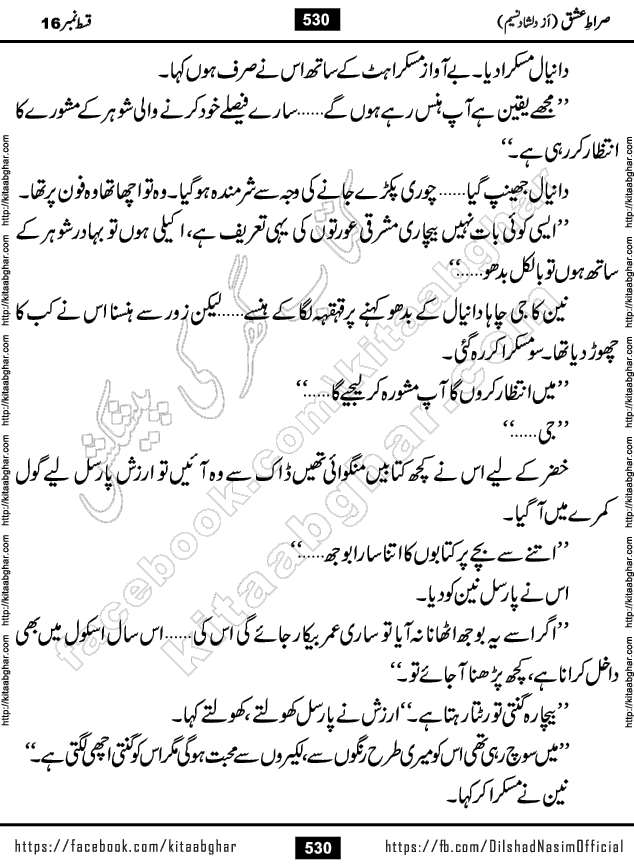 صراطِ عشق (از دلشاد نسیم)
530
قسط نمبر 16
دانیال مسکرا دیا۔ بے آواز مسکراہٹ کے ساتھ اس نے صرف ہوں کہا۔
’’مجھے یقین ہے آپ ہنس رہے ہوں گے......سارے فیصلے خود کرنے والی شوہر کے مشورے کا
انتظار کر رہی ہے۔‘‘
دانیال جھینپ گیا......چوری پکڑے جانے کی وجہ سے شرمندہ ہوگیا۔ وہ تو اچھا تھا وہ فون پر تھا۔
’’ایسی کوئی بات نہیں بیچاری مشرقی عورتوں کی یہی تعریف ہے، اکیلی ہوں تو بہادر شوہر کے
ساتھ ہوں تو بالکل بدھو......‘‘
نین کا جی چاہا دانیال کے بدھو کہنے پر قہقہہ لگا کے ہنسے......لیکن زور سے ہنسنا اس نے کب کا
چھوڑ دیا تھا۔ سو مسکرا کر رہ گئی۔
’’میں انتظار کروں گا آپ مشورہ کر لیجیے گا......‘‘
’’جی......‘‘
خضر کے لیے اس نے کچھ کتابیں منگوائی تھیں ڈاک سے وہ آئیں تو ارزش پارسل لیے گول
کمرے میں آگیا۔
’’اتنے سے بچے پر کتابوں کا اتنا سارا بوجھ......‘‘
اس نے پارسل نین کو دیا۔
’’اگر اسے یہ بوجھ اٹھانا نہ آیا تو ساری عمر بیکار جائے گی اس کی......اس سال اسکول میں بھی
داخل کرانا ہے، کچھ پڑھنا آجائے تو۔‘‘
’’بیچارہ گنتی تو رٹتا رہتا ہے۔‘‘ ارزش نے پارسل کھولتے، کھولتے کہا۔
’’میں سوچ رہی تھی اس کو میری طرح رنگوں سے، لکیروں سے محبت ہوگی مگر اس کو گنتی اچھی لگتی ہے۔‘‘
نین نے مسکرا کر کہا۔
https://facebook.com/kitaabghar
530
https://fb.com/DilshadNasimOfficial
http://kitaabghar.com http://kitaabghar.com http://kitaabghar.com http://kitaabghar.com http://kitaabghar.com http://kitaabghar.com
http://kitaabghar.com http://kitaabghar.com http://kitaabghar.com http://kitaabghar.com http://kitaabghar.com http://kitaabghar.com
کتاب گھر کی پیشکش
facebook.com/kitaabghar
kitaabghar.com